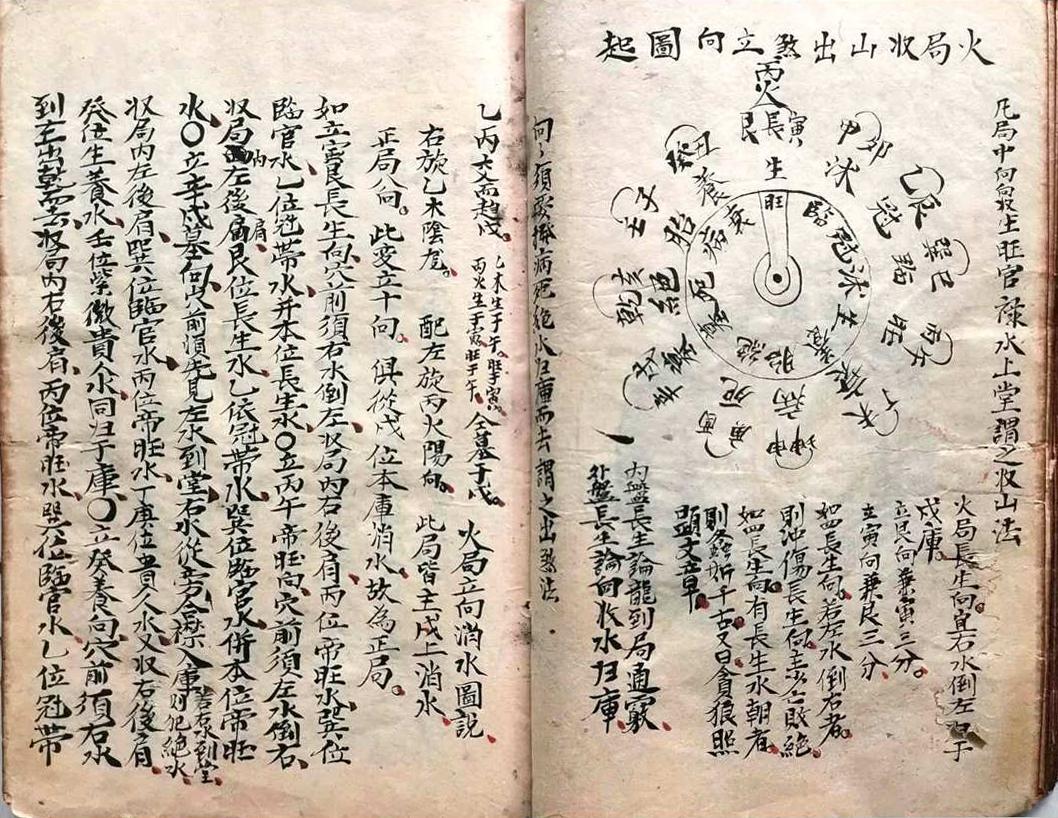 火局收山出煞立向圖起
凡局中向最生旺官祿水上堂謂之收山法
丙火
寅
艮
長
生
旺
甲卯
沐
乙辰
冠
巽巳
臨
丙午
旺
衰
病
死
墓
絕
乾亥
胎
壬子
養
癸丑
臨冠沐生養胎絕墓死病衰
火局長生向宜右水倒左歸于
戌庫
立艮向兼寅三分
立寅向兼艮三分
如四長生向若左水倒右者
則沖傷長生
如四長生向有長生水朝者
則螽斯千古又曰貪狼照
顯文章
內盤長生論龍到局通竅
外盤長生論向收水归庫
向向須要 病死絕水归庫而去謂之出煞法
乙丙交而趨戌
乙木生于午旺寅
丙火生于寅旺于午
仝墓于戌
火局立向消水圖說
右旋乙木陰龍 配左旋丙火陽向 此局皆主戌上消水
正局向 此爻立十向 俱從戌位本庫消水故為正局
如立寅艮長生向穴前須右水倒左收局內右後肩丙位帝旺水巽位
臨官水乙位冠帶水并本位長生水〇立丙午帝旺向穴前須左水倒右
收局內左後肩艮位長生水乙依冠帶水巽位臨官水併本位帝旺
水〇立辛戌墓向穴前須先見左水到堂右水從旁合襟入庫若右水到堂則犯絕水
收局內左後肩巽位臨官水丙位帝旺水丁庚位貴人水又收右後肩
癸位生養水壬位紫微貴人水同归于庫〇立癸養向穴前須右水
到左出乾而去收局內右後肩丙位帝旺水巽位臨官水乙位冠帶